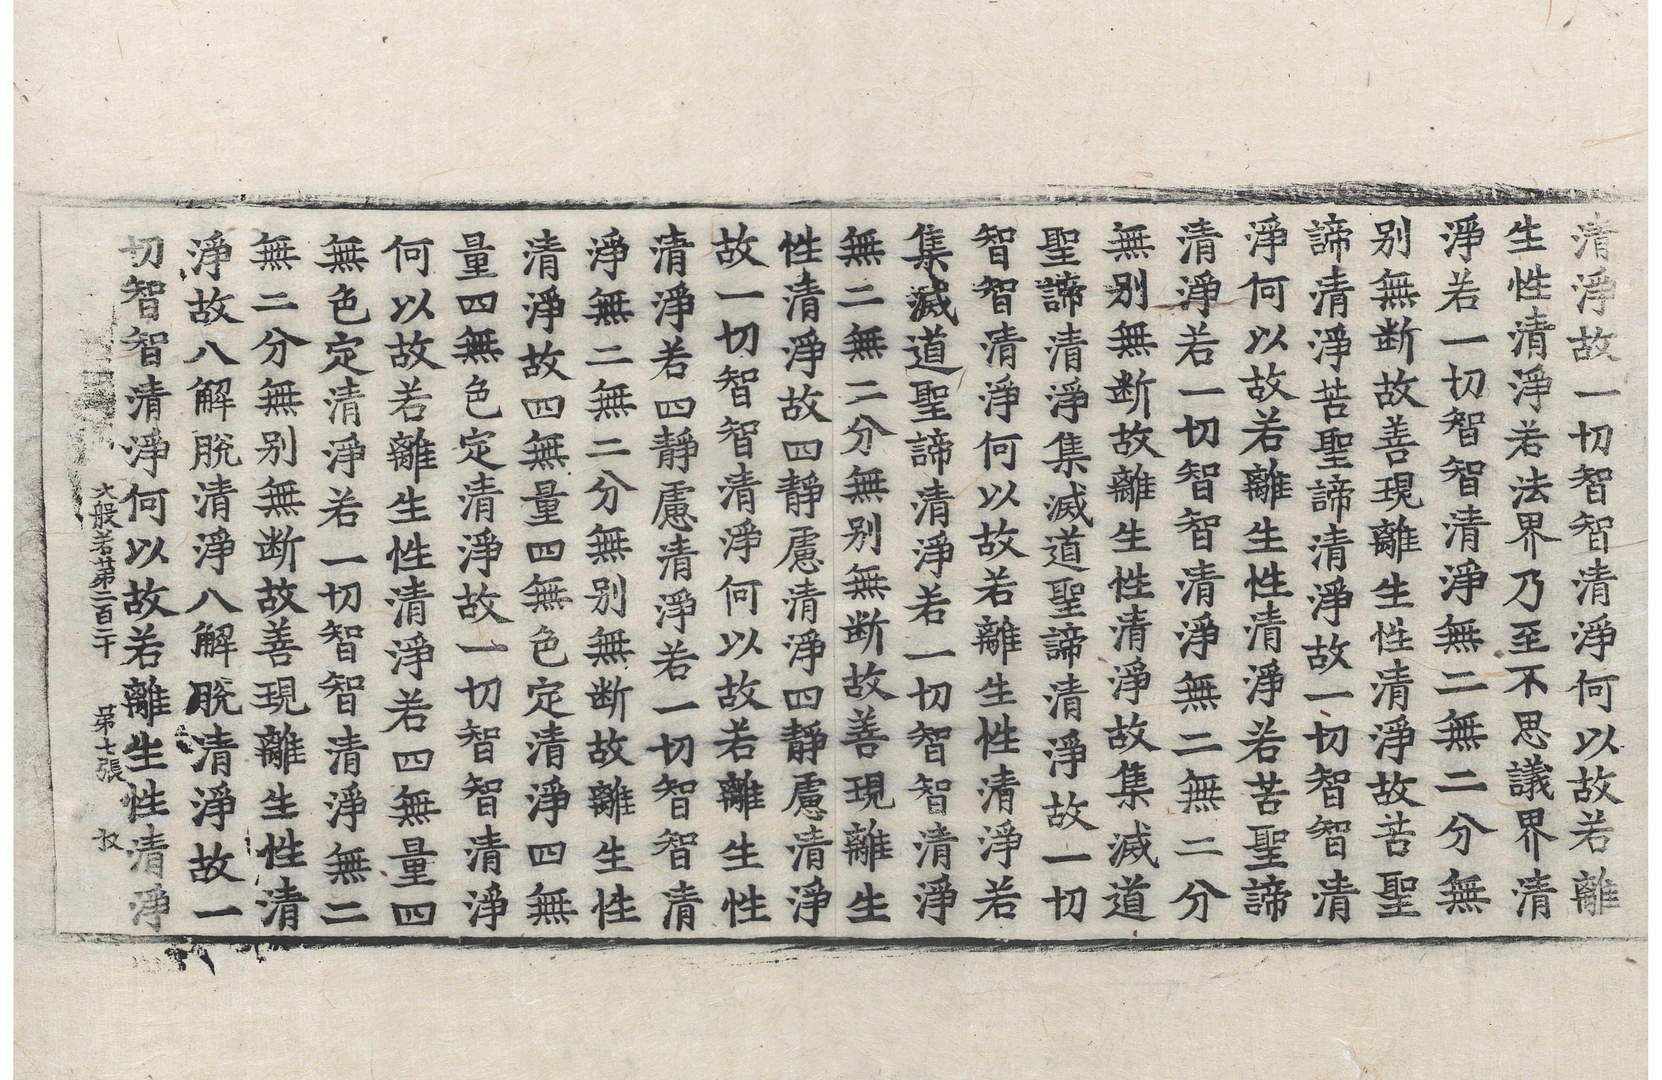 清淨故一切智智清淨何以故若離
生性清淨若法界乃至不思議界清
淨若一切智智清淨無二無二分無
别無断故善現離生性清淨故苦聖
諦清淨苦聖諦清淨故一切智智清
淨何以故若離生性清淨若苦聖諦
清淨若一切智智清淨無二無二分
無别無断故離生性清淨故集滅道
聖諦清淨集滅道聖諦清淨故一切
智智清淨何以故若離生性清淨若
集滅道聖諦清淨若一切智智清淨
無二無二分無别無断故善現離生
性清淨故四靜慮清淨四靜慮清淨
故一切智智清淨何以故若離生性
清淨若四靜慮清淨若一切智智清
淨無二無二分無别無断故離生性
清淨故四無量四無色定清淨四無
量四無色定清淨故一切智智清淨
何以故若離生性清淨若四無量四
無色定清淨若一切智智清淨無二
無二分無别無断故善現離生性清
淨故八解脫清淨八解脫清淨故一
切智智清淨何以故若離生性清淨
大般若第二百二十 第七張